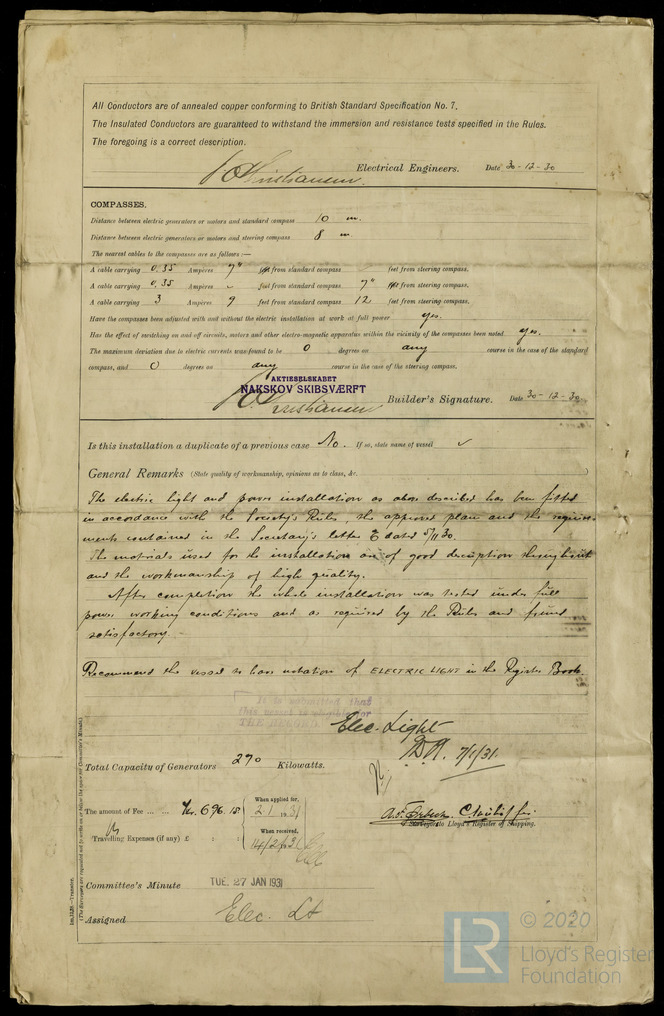 All Conductors are of annealed copper conforming to British Standard Specification No. 7.
The Insulated Conductors are guaranteed to withstand the immersion and resistance tests specified in the Rules.
The foregoing is a correct description.
Christiansen Electrical Engineers. Date 30-12-30
COMPASSES.
Distance between electric generators or motors and standard compass 10 m.
Distance between electric generators or motors and steering compass 8 m.
The nearest cables to the compasses are as follows:—
A cable carrying 0.35 Ampères 7" feet from standard compass feet from steering compass.
A cable carrying 0.35 Ampères - feet from standard compass 7" feet from steering compass.
A cable carrying 3 Ampères 9 feet from standard compass 12 feet from steering compass.
Have the compasses been adjusted with and without the electric installation at work at full power yes.
Has the effect of switching on and off circuits, motors and other electro-magnetic apparatus within the vicinity of the compasses been noted yes.
The maximum deviation due to electric currents was found to be 0 degrees on any course in the case of the standard
compass, and 0 degrees on any course in the case of the steering compass.
AKTIESELSKABET
NAKSKOV SKIBSVÆRFT
Christiansen Builder's Signature. Date 30-12-30
Is this installation a duplicate of a previous case No. If so, state name of vessel ✓
General Remarks (State quality of workmanship, opinions as to class, &c. )
The electric light and power installation as above described has been fitted
in accordance with the Society's Rules, the approved plan and the require-
ments contained in the Secretary's letter E dated 5/11/30.
The materials used for the installation are of good description throughout
and the workmanship of high quality.
After completion the whole installation was tested under full
power working conditions and as required by the Rules and found
satisfactory.
Recommend the vessel to have notation of ELECTRIC LIGHT in the Register Book.
It is submitted that
this vessel is eligible for
THE RECORD
Elec. Light
7/1/31.
Total Capacity of Generators 270 Kilowatts.
The amount of Fee ... ... Kr. 696.15
When applied for,
2/1 1931
Travelling Expenses (if any) £ : :
When received,
14/2/31
Surveyor to Lloyd's Register of Shipping.
Committee's Minute TUE. 27 JAN 1931
Assigned Elec. Lt
(The Surveyors are requested not to write on or below the space for Committee's Minute.)
© 2020
LR
Lloyd's Register
Foundation